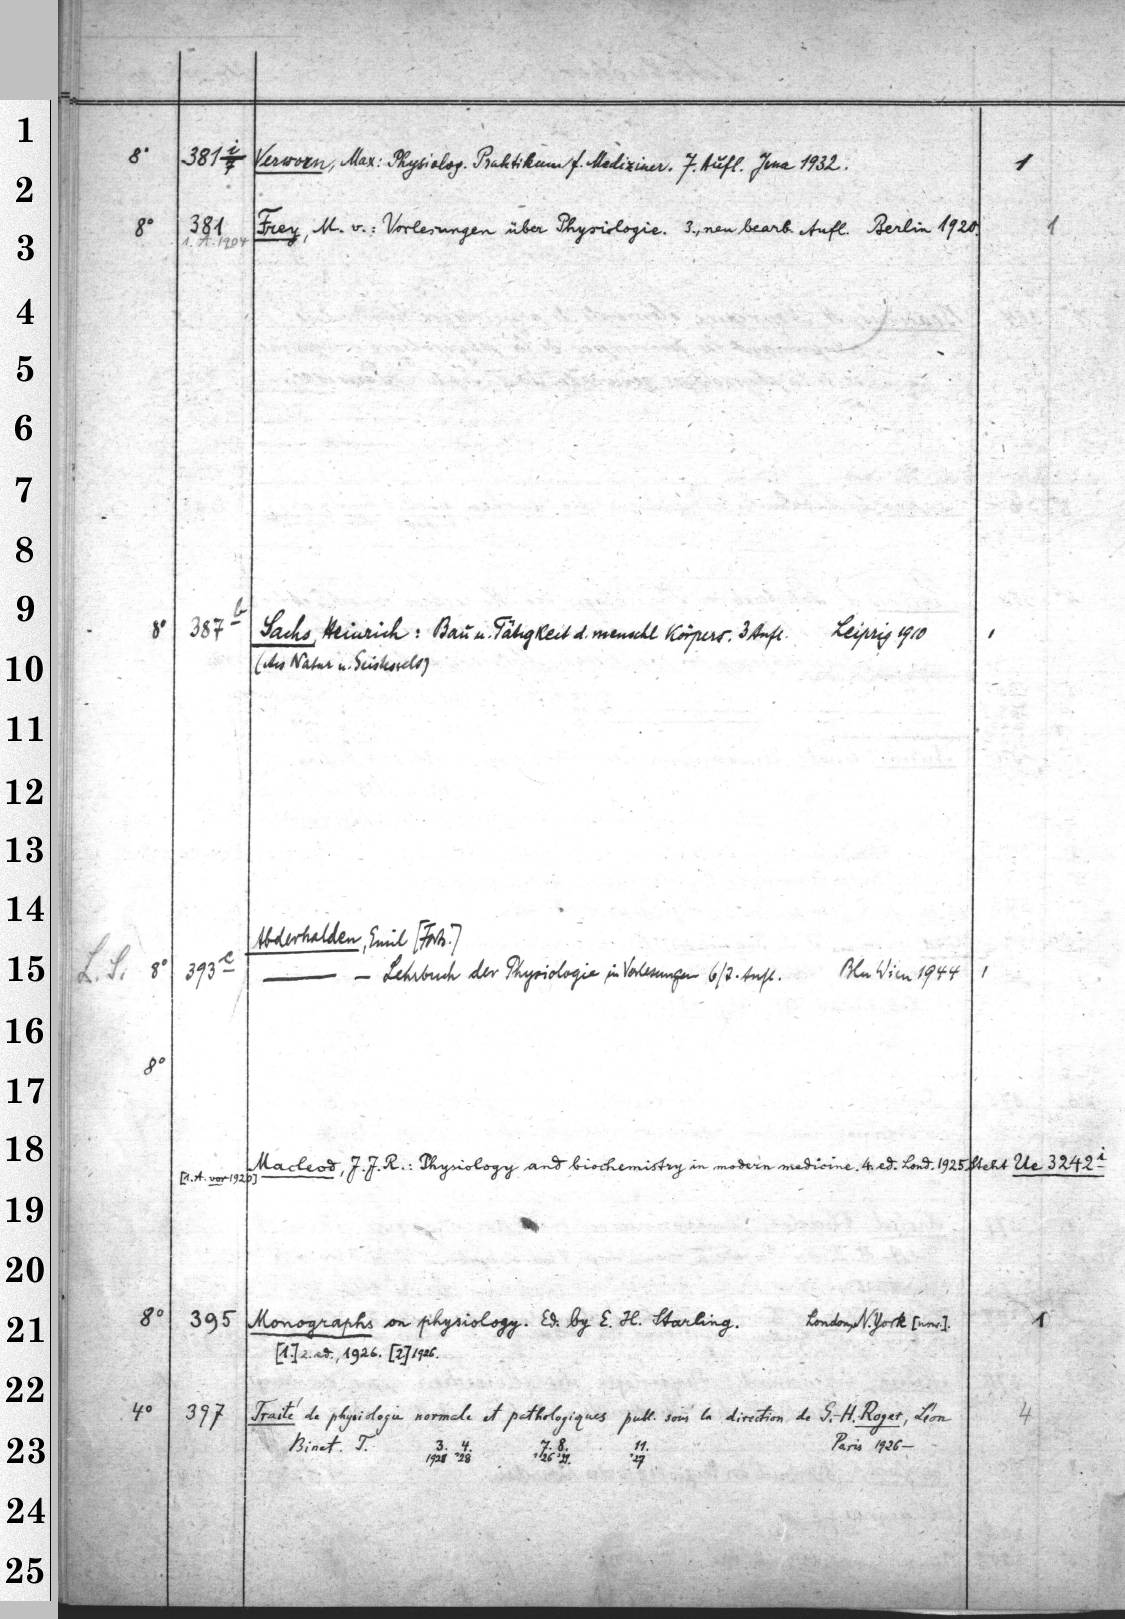 1
8° 381 i/7 Verworn, Max: Physiolog. Praktikum f. Mediziner. 7. Aufl. Jena 1932. 1
2
8° 381 Frey, M. v.: Vorlesungen über Physiologie. 3., neu bearb. Aufl. Berlin 1920. 1
1. A. 1904
3
4
5
6
7
8
9
8° 387 b Sachs, Heinrich: Bau u. Tätigkeit d. menschl Körpers. 3 Aufl. Leipzig 1910 1
(Aus Natur u. Geisteswelt)
10
11
12
13
14
Abderhalden, Emil [Forts.]
15
L. S. 8° 393 e — Lehrbuch der Physiologie in Vorlesungen 6/7. Aufl. Bln Wien 1944 1
16
8°
17
18
Macleod, J. J. R.: Physiology and biochemistry in modern medicine. 4. ed. Lond. 1925 steht Ue 3242 i
[1. A. vor 1920]
19
20
21
8° 395 Monographs on physiology. Ed. by E. H. Starling. London, N. York 1
[1.] 2. ed., 1926. [2] 1926.
22
4° 397 Traité de physiologie normale et pathologiques publ. sous la direction de G.-H. Roger, Léon 4
23
Binet. T. 3. 4. 7. 8. 11. Paris 1926—
1928 '28 '26 '27. '27
24
25